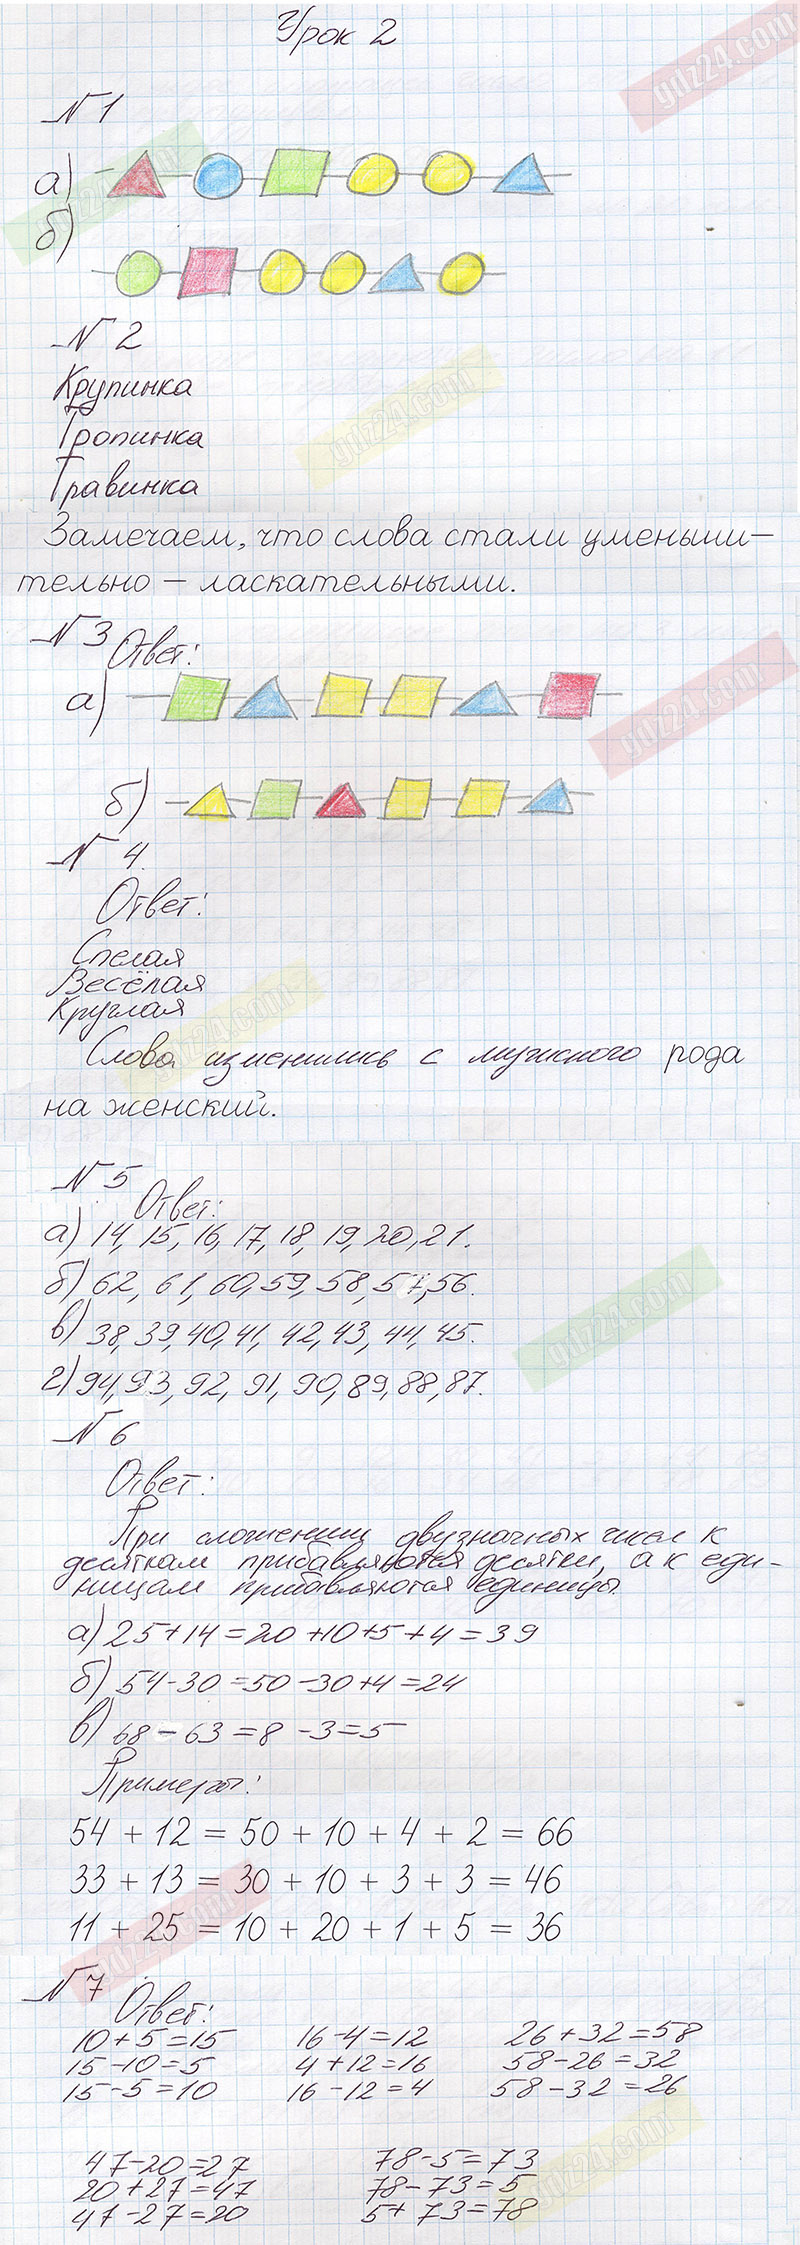 Урок 2
№ 1
а)
б)
№ 2
Крупинка
Тропинка
Травинка
Замечаем, что слова стали уменьши-
тельно - ласкательными.
№ 3 Ответ:
а)
б)
№ 4.
Ответ:
Спелая
Весёлая
Круглая
Слова изменились с мужского рода
на женский.
№ 5
Ответ:
а) 14, 15, 16, 17, 18, 19, 20, 21.
б) 62, 61, 60, 59, 58, 57, 56.
в) 38, 39, 40, 41, 42, 43, 44, 45.
г) 94, 93, 92, 91, 90, 89, 88, 87.
№ 6
Ответ:
При сложении двузначных чисел к
десяткам прибавляются десятки, а к еди-
ницам прибавляются единицы.
а) 25+14=20+10+5+4=39
б) 54-30=50-30+4=24
в) 68-63=8-3=5
Примеры:
54 + 12 = 50 + 10 + 4 + 2 = 66
33 + 13 = 30 + 10 + 3 + 3 = 46
11 + 25 = 10 + 20 + 1 + 5 = 36
№ 7
Ответ:
10+5=15 16-4=12 26+32=58
15-10=5 4+12=16 58-26=32
15-5=10 16-12=4 58-32=26
47-20=27 78-5=73
20+27=47 78-73=5
47-27=20 5+73=78
gdz24.com
gdz24.com
gdz24.com
gdz24.com
gdz24.com
gdz24.com
gdz24.com
gdz24.com